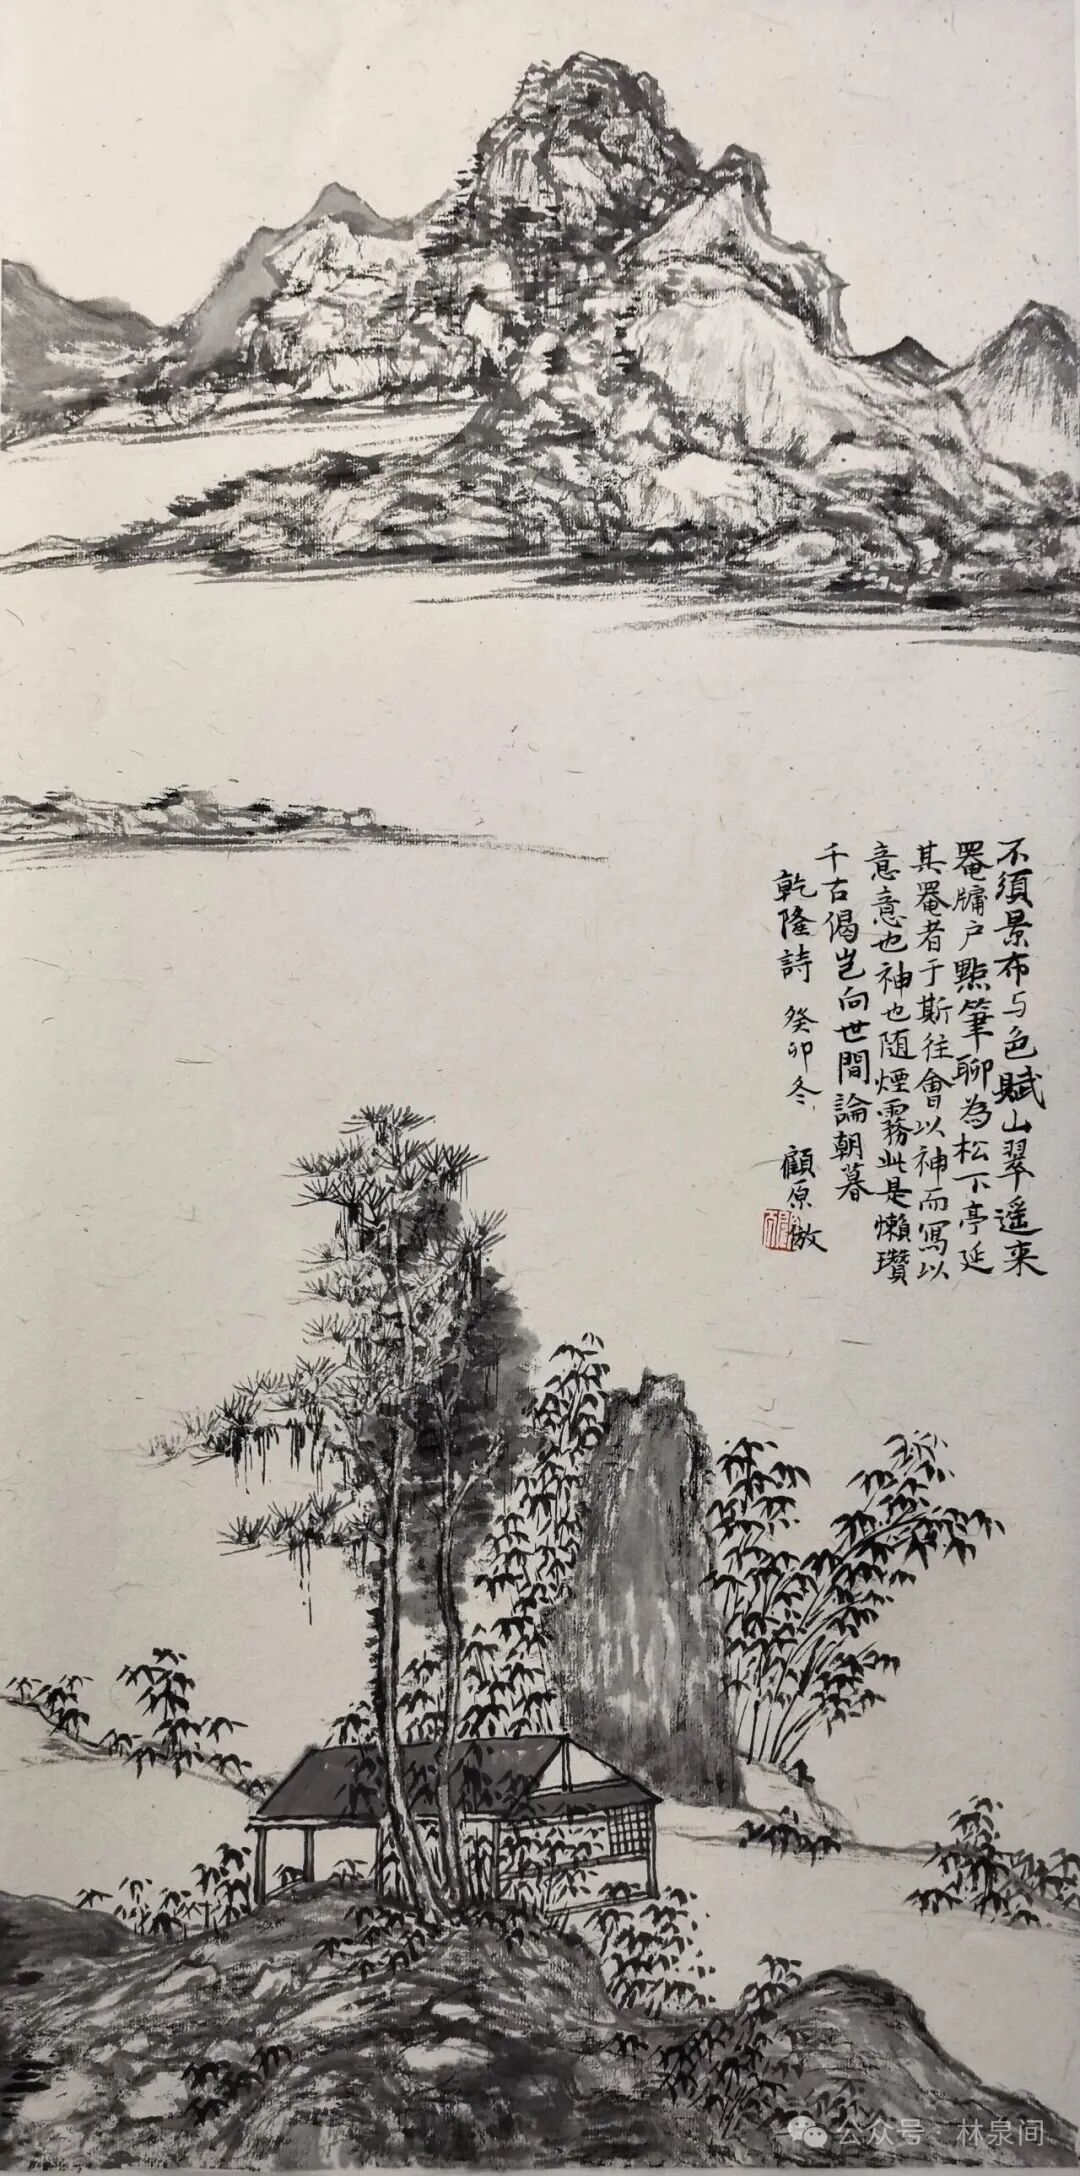 不須景布与色賦山翠遥来
罨牗户點筆聊為松下亭延
其罨者于斯往會以神而寫以
意意也神也随煙霧此是懶瓚
千古偈岂向世間論朝暮
乾隆詩 癸卯冬 顧原倣
公众号·林泉间